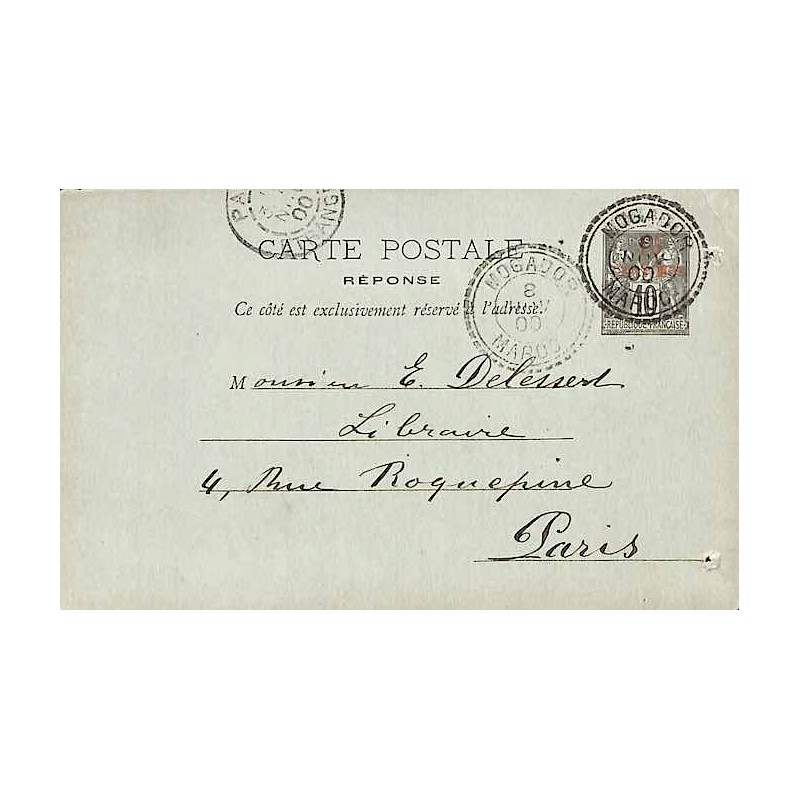 CARTE POSTALE
RÉPONSE
Ce côté est exclusivement réservé à l'adresse.
MOGADOR
8
NOV
00
MAROC
MOGADOR
8
NOV
00
MAROC
10
REPUBLIQUE FRANÇAISE
Monsieur E. Delessert
Libraire
4, Rue Roquepine
Paris